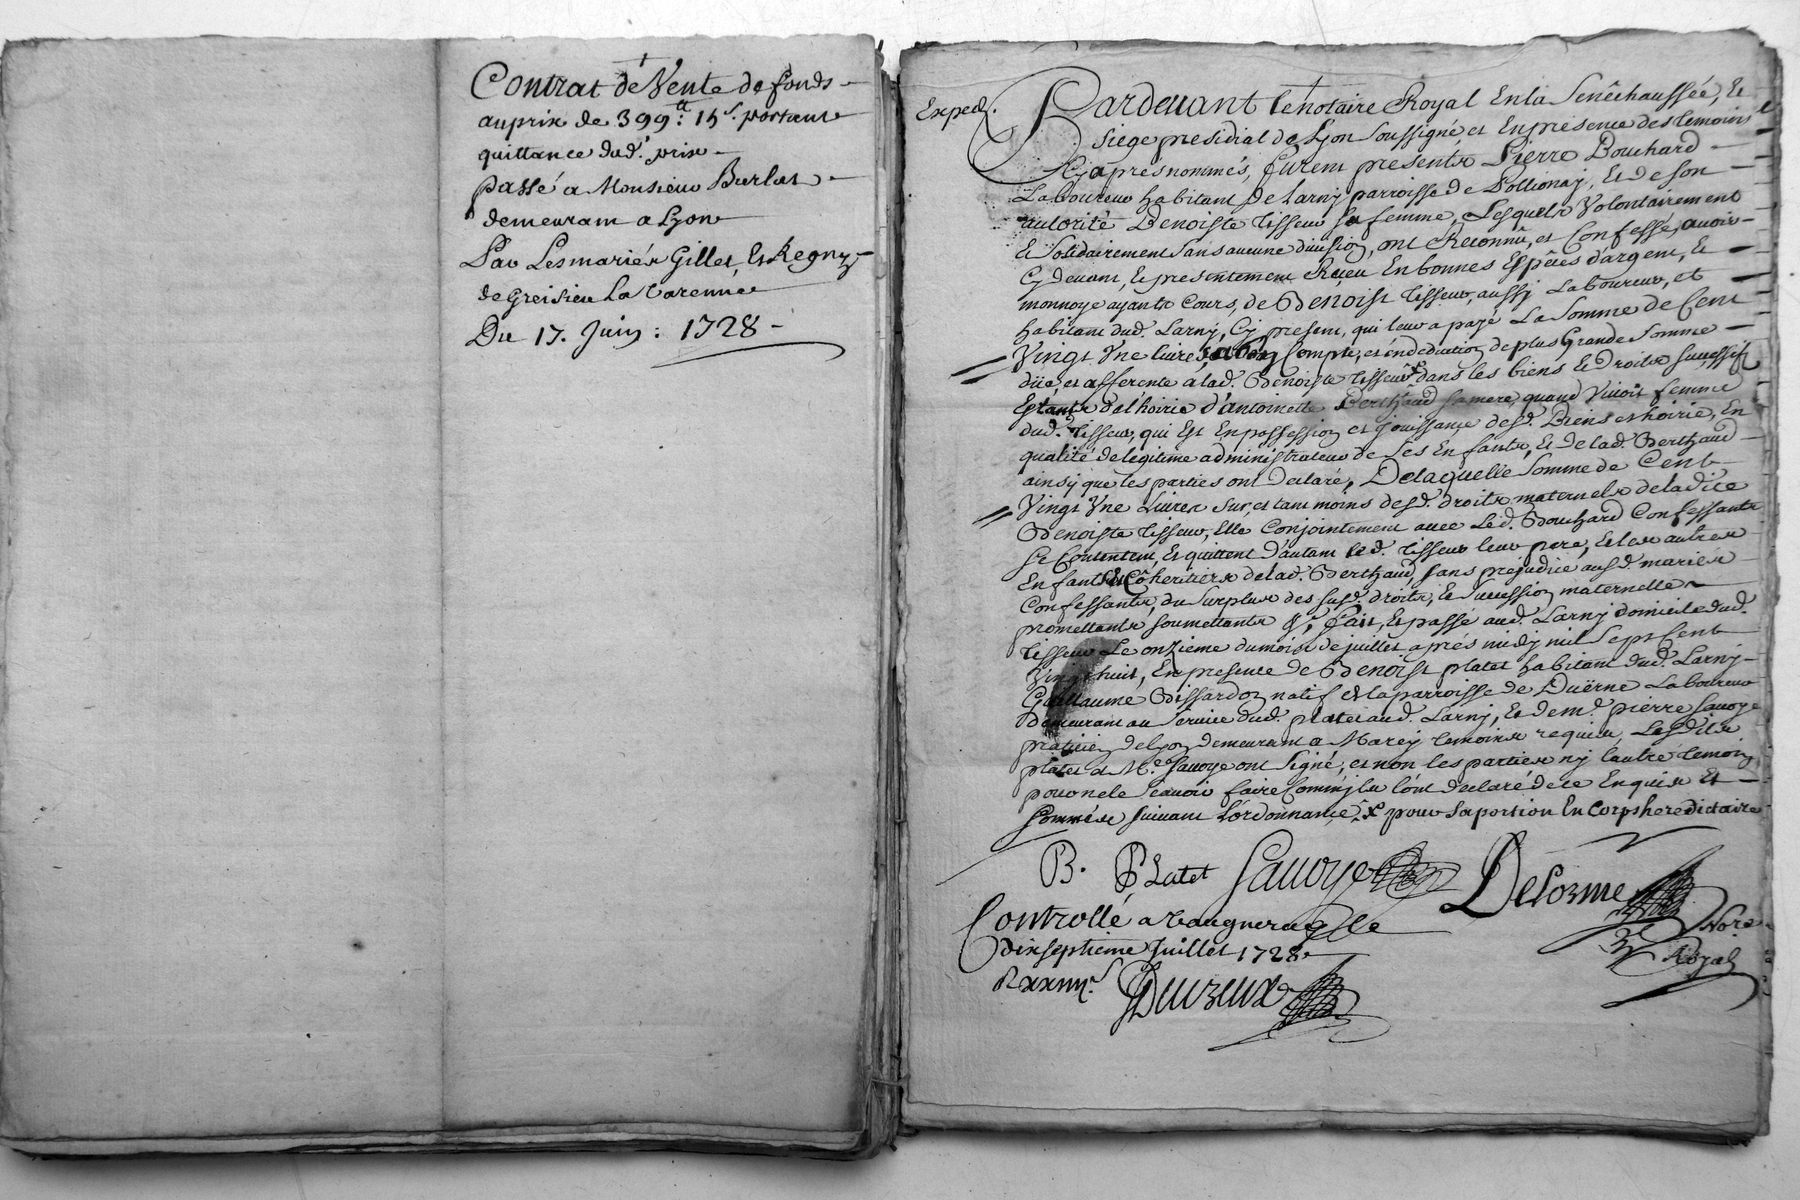 Contrat de Vente de fonds
au prix de 399.tt 15s. portant
quittance dud. prix
passé a Monsieur Burlat
demeurant a Lyon
Par Les mariés Gillet, et Regny
de Greisieu La Varenne
Du 17. Juin : 1728
Exped.
Pardevant le notaire Royal En la Senêchaussée, Et
siege presidial de Lyon soussigné et En presence des temoins
Cy aprés nommés, furent presents Pierre Bouchard
Laboureur habitant De Larny parroisse de Pollionay, Et de son
autorité Benoiste Tisseur sa femme, Lesquels Volontairement
Et Solidairement sans aucune division, ont Reconnû, et Confessé, avoir
Cy devant, Et presentement Reçeu En bonnes Espêces d'argent, Et
monnoye ayants Cours, de Benoist Tisseur, aussy Laboureur, et
habitant dud. Larny, Cy present, qui leur a payé La Somme de Cent
Vingt Une livres, a bon Compte, et en deduction de plus Grande Somme
düe, et afferente a lad. Benoiste Tisseur x dans les biens Et Droits successifs
Estants de l'hoirie d'antoinette Berthaud sa mere, quand Vivoit femme
dud. Tisseur, qui Est En possession et jouissance desd. Biens et hoirie, En
qualité de legitime administrateur de Ses Enfants, Et de lad. Berthaud
ainsy que les parties ont declaré, De laquelle Somme de Cent
Vingt Une Livres sur, et tant moins desd. droits maternels de ladite
Benoiste Tisseur, Elle Conjointement avec Led. Bouchard Confessants
se Contentent, Et quittent d'autant led. Tisseur leur pere, Et les autres
Enfants Et Côheritiers de lad. Berthaud, sans prejudice ausd. mariés
Confessants, du Surplus des susd. droits, Et Succession maternelle
promettants soumettants &c. fait, Et passé aud. Larny domicile dud.
Tisseur Le onzieme du mois de juillet aprés midy mil Sept Cent
Vingt huit, En presence de Benoist platet habitant dud. Larny
Guillaume Bissardon natif de la parroisse de Duërne Laboureur
demeurant au Service dud. platet aud. Larny, Et de Me. pierre Savoye
praticien de Lyon demeurant a Marcy temoins requis, Lesdits
platet & Me. Savoye ont signé, et non les parties ny l'autre temoin
pour ne le Scavoir faire Comm'ils l'ont declaré de ce Enquis Et
sommés suivant L'ordonnance, x pour sa portion En Corps hereditaire
B. Platet Savoye Delorme
Nore
Royal
Controllé a Vaugneray Le
dixseptieme Juillet 1728
Duizeux